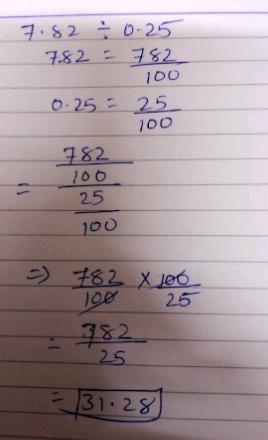 7.82 ÷ 0.25
7.82 = 782/100
0.25 = 25/100
= 782/100 / 25/100
=> 782/100 × 100/25
= 782/25
= 31.28